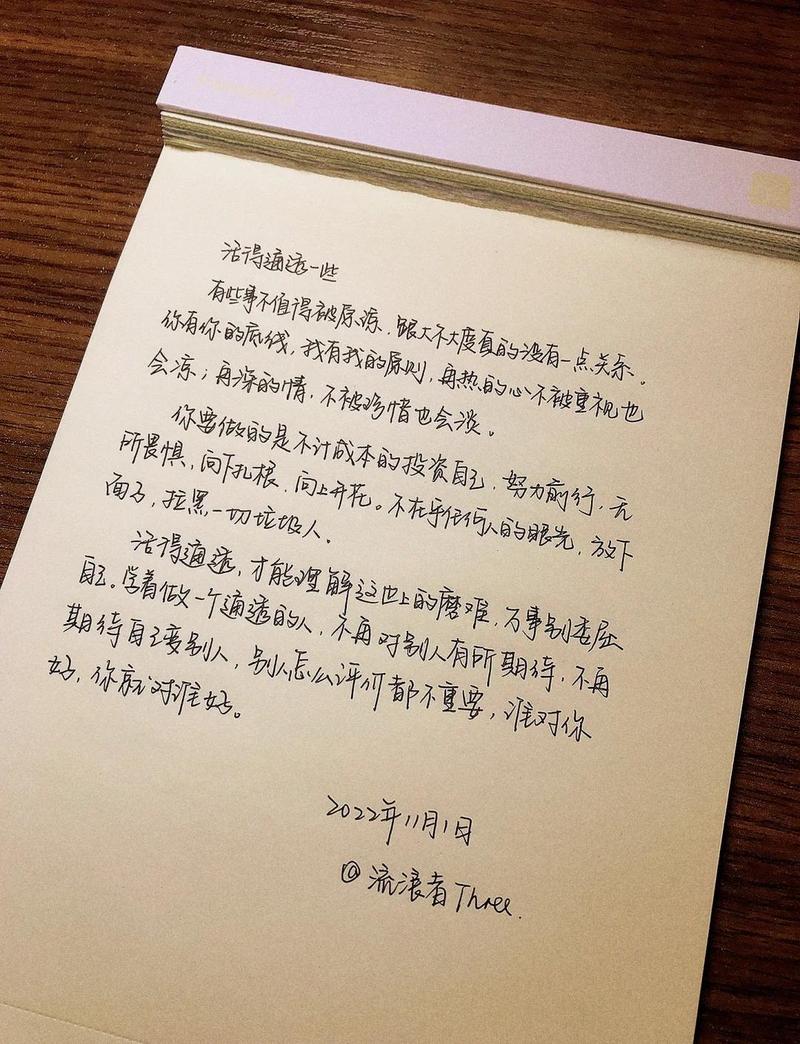 活得通透一些
有些事不值得被原谅，跟大不大度真的没有一点关系。
你有你的底线，我有我的原则，再热的心不被重视也
会凉；再深的情，不被珍惜也会淡。
你要做的是不计成本的投资自己，努力前行，无
所畏惧，向下扎根，向上开花。不在乎任何人的眼光，放下
面子，拉黑一切垃圾人。
活得通透，才能理解这世上的磨难，万事别委屈
自己。学着做一个通透的人，不再对别人有所期待，不再
期待自己变别人，别人怎么评价都不重要，谁对你
好，你就对谁好。
2022年11月1日
@流浪者Three.